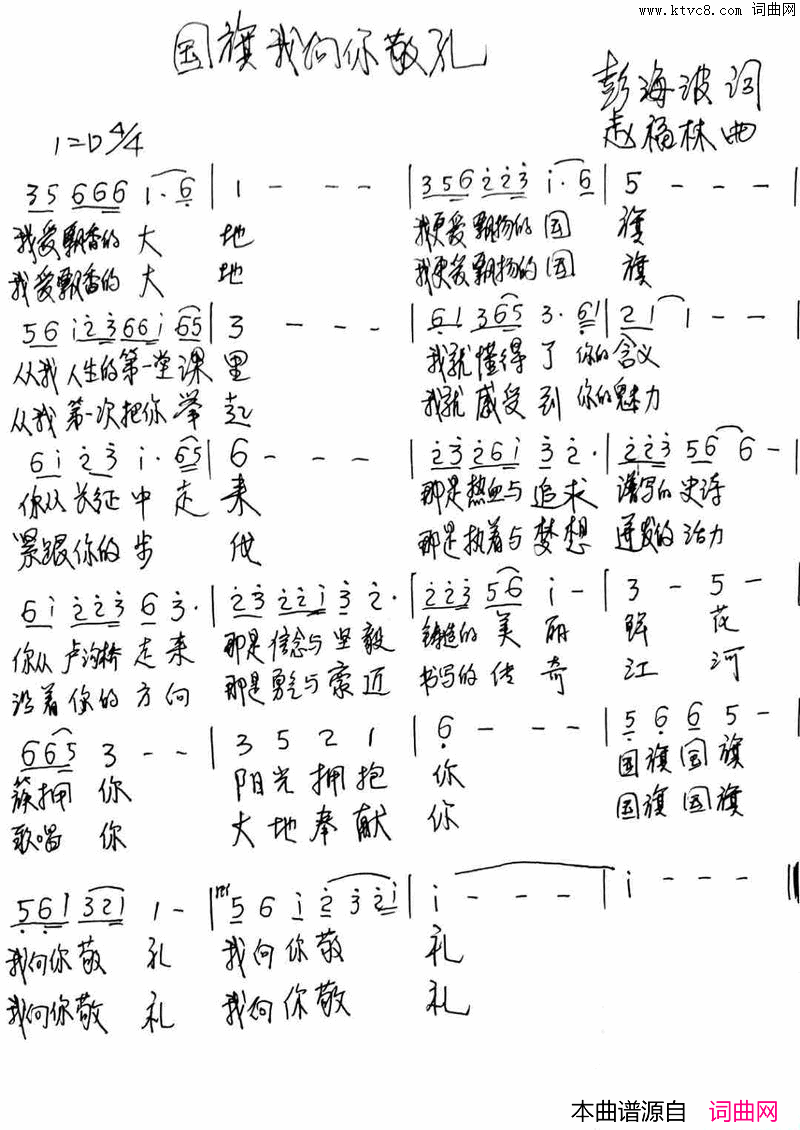 www.ktvc8.com 词曲网
国旗我向你敬礼
彭海波词
赵福林曲
1=D 4/4
35 666 1·6 | 1 - - - | 356 223 i·6 | 5 - - - |
我爱飘香的大地 我更爱飘扬的国旗
我爱飘香的大地 我更爱飘扬的国旗
56 i23 66i 65 | 3 - - - | 61 365 3·61 | 21 1 - - |
从我人生的第一堂课里 我就懂得了你的含义
从我第一次把你举起 我就感受到你的魅力
6i 23 i·65 | 6 - - - | 23 26i 3 2· | 223 56 6 - |
你从长征中走来 那是热血与追求 谱写的史诗
紧跟你的步伐 那是执着与梦想 迸发的活力
6i 223 6 3· | 23 22i 3 2· | 223 56 i - | 3 - 5 - |
你从卢沟桥走来 那是信念与坚毅 铸造的美丽 鲜花
沿着你的方向 那是勇气与豪迈 书写的传奇 江河
665 3 - - | 3 5 2 1 | 6 - - - | 5 6 6 5 - |
簇拥你 阳光拥抱你 国旗国旗
歌唱你 大地奉献你 国旗国旗
561 321 1 - | 5 6 i 2 3 2i | i - - - | i - - - ‖
我向你敬礼 我向你敬礼
我向你敬礼 我向你敬礼
本曲谱源自 词曲网